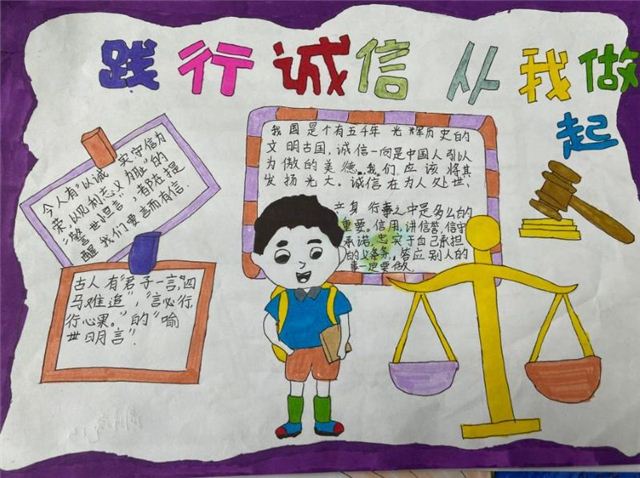 践行诚信 从我做
起
今人有"以诚实守信为
荣,以见利忘义为耻"的
"警世坦言",都在提
醒我们要言而有信.
古人有"君子一言,四
马难追","言必行,
行心果。"的"喻
世明言".
我国是个有五千年光辉历史的
文明古国,诚信一向是中国人引以
为傲的美德.我们应该将其
发扬光大。诚信在为人处世、
立身行事之中是多么的
重要,信用,讲信誉,信守
承诺,忠实于自己承担
的义务,答应别人的
事一定要做.